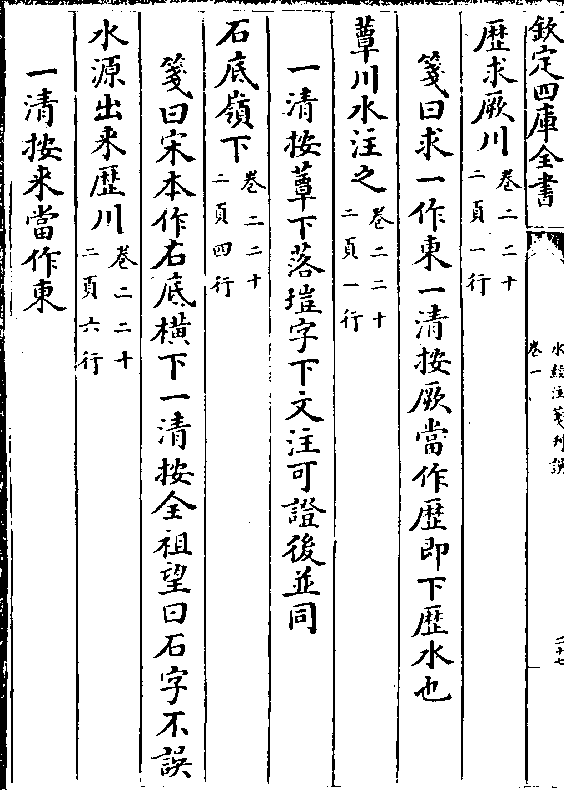 欽定四庫全書
水經注箋刊誤
卷一
二十七
歴求厥川 卷二二十
二頁一行
箋曰求一作東一清按厥當作歴即下歴水也
蕈川水注之 卷二二十
二頁一行
一清按蕈下落塏字下文注可證後並同
石底嶺下 卷二二十
二頁四行
箋曰宋本作右底橫下一清按全祖望曰石字不誤
水源出来歴川 卷二二十
二頁六行
一清按来當作東